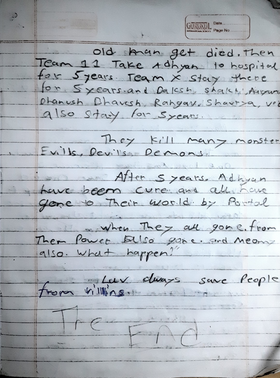 Date
Page No.
old man get died. Then
Team 11 Take Adhyan to hospital
for 5 years Team X stay there
for 5 years and Daksh, Shaksh, Aaryan
Dhanush Dhavsh, Raghav, Shaurya,
also stay for 5 years.
They kill many monster
Evills, Devils Demons
After 5 years, Adhyan
have beem cure and all have
gone to Their world by Portal
When They all gone from
Them Power also gone. and
also. What happen?"
Luv always save People
from killing.
The End